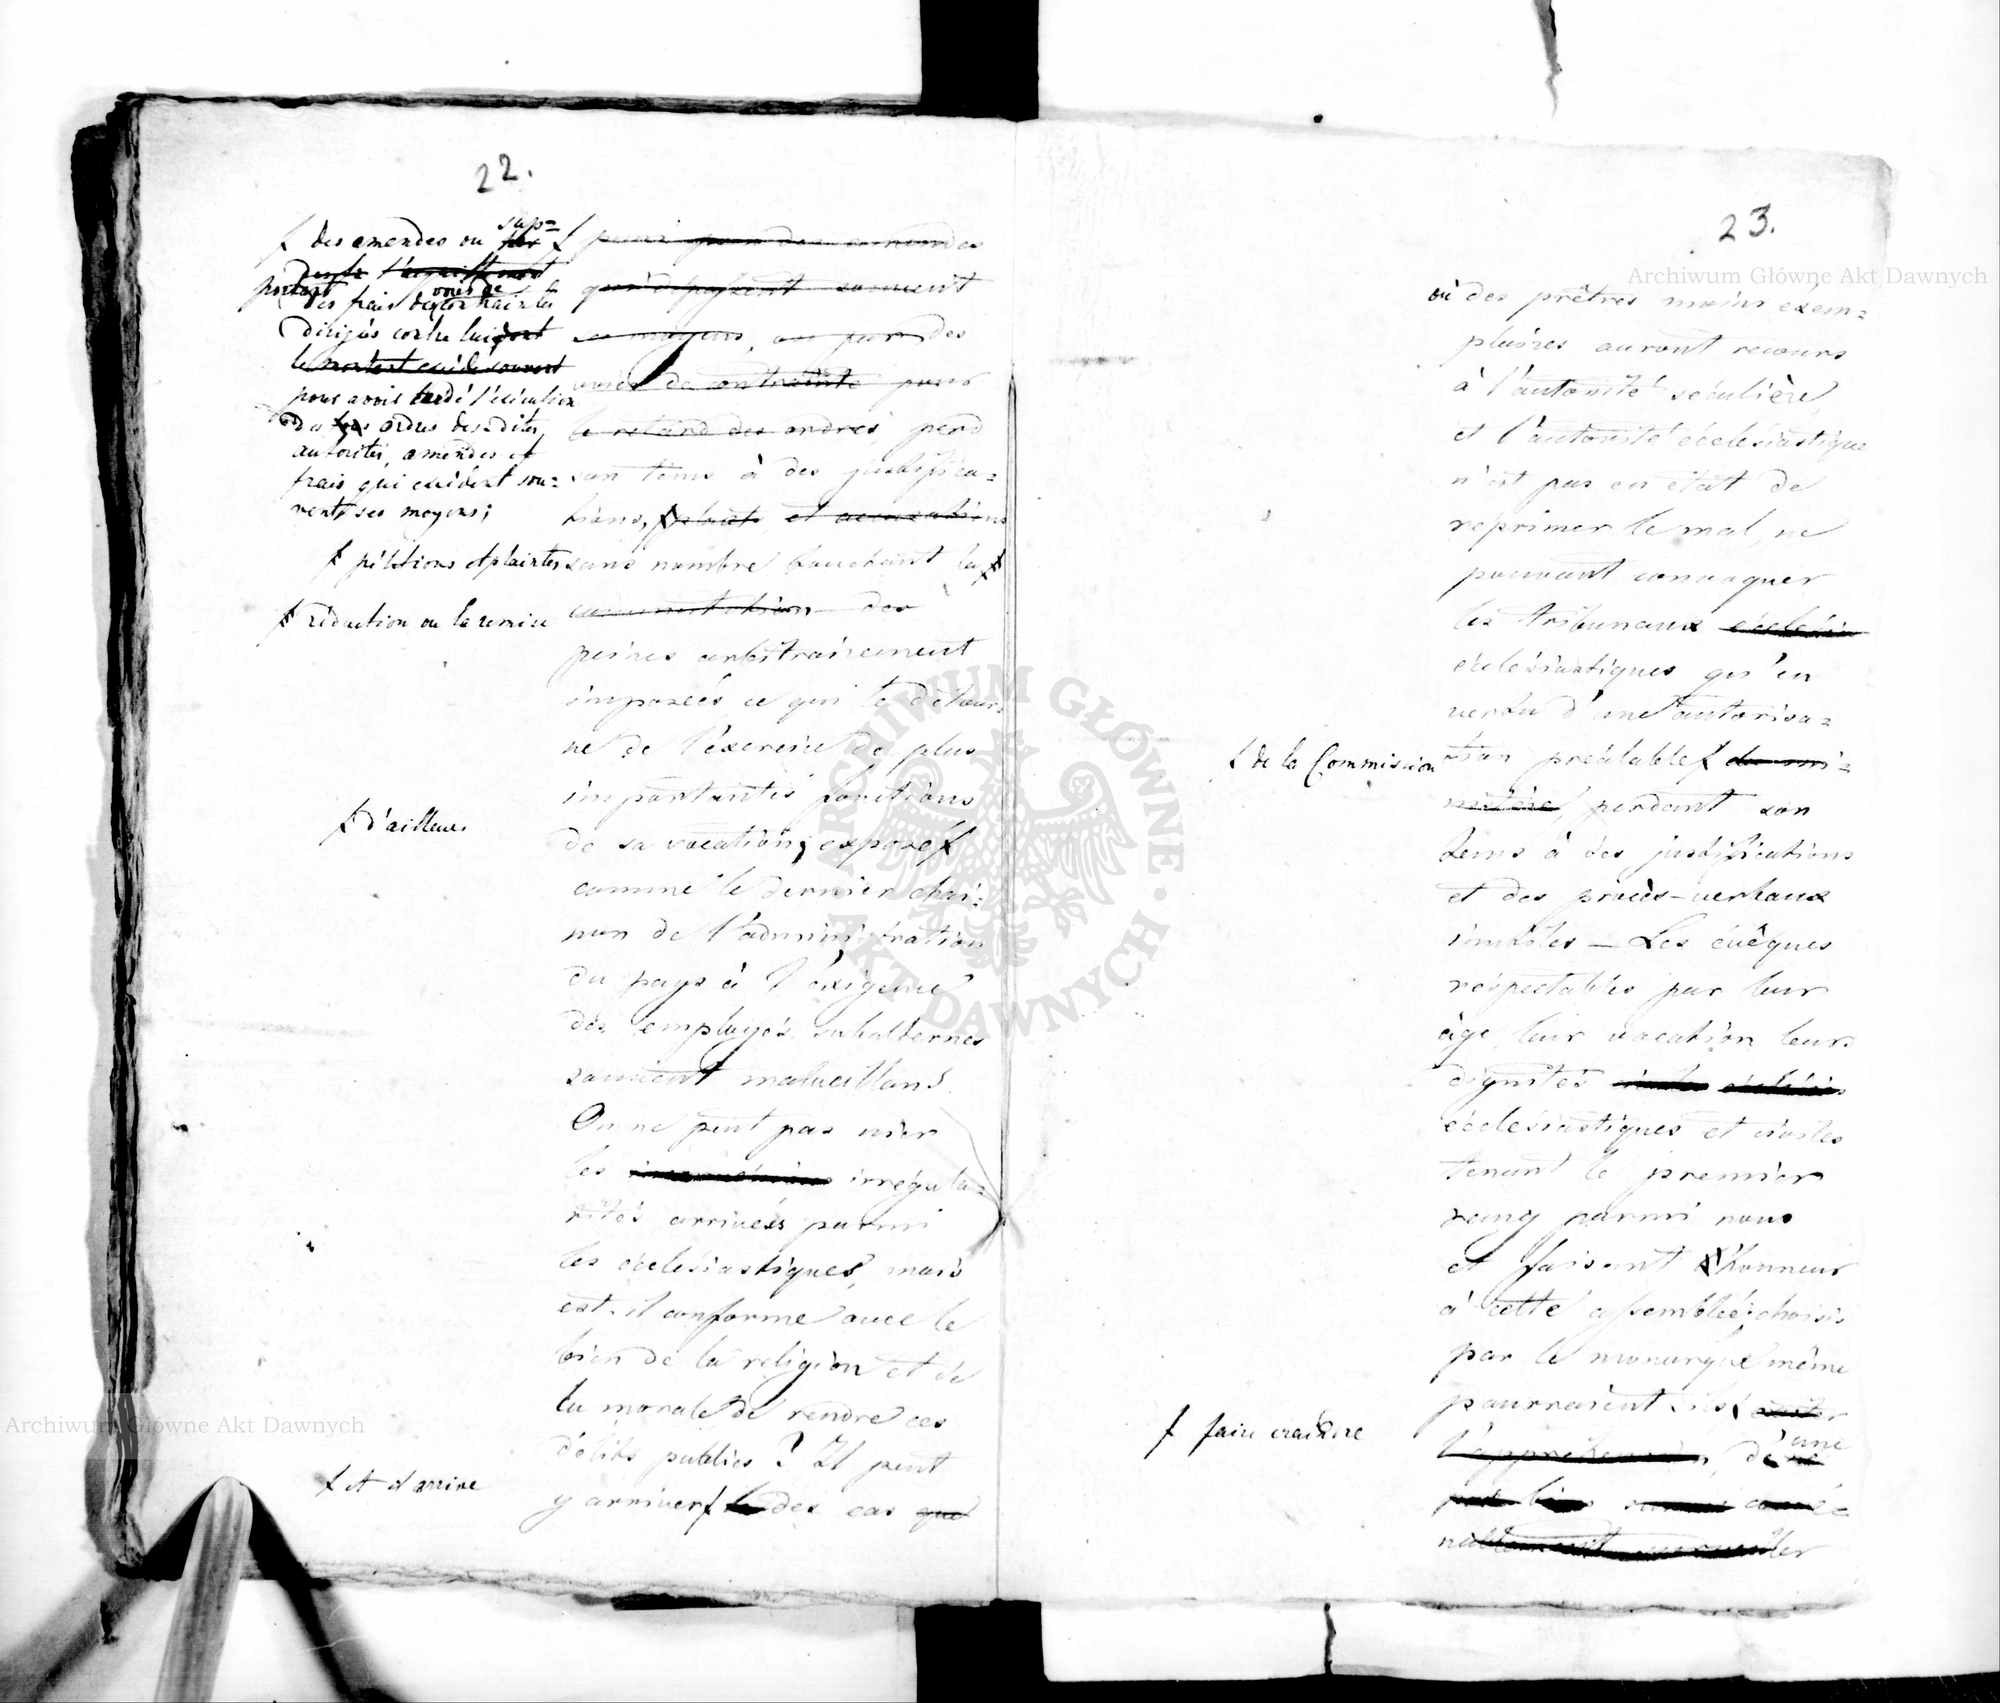 22.
ƒ des amendes ou sup=
portant
des frais des voies de contrainte
dirigés contre lui
pour avoir tardé l'exécution
des ordres desdites
autorités, amendes et
frais qui excèdent sou=
vent ses moyens;
ƒ pétitions et plaintes
ƒ réduction ou la remise
ƒ d'ailleurs
ƒ et il arrive
ƒ punis par des amendes
qui dépassent souvent
ses moyens, ou par des
voies de contrainte pour
le retard des ordres, perd
son tems à des justifica=
tions, ƒ plaintes et accusations
sans nombre touchant la ƒ
commutation des
peines arbitrairement
imposées ce qui le détour=
ne de l'éxercice de plus
importantes fonctions
de sa vocation; exposé ƒ
comme le dernier chai=
non de l'administration
du pays à l'éxigence
des employés subalternes
souvent malveillans.
On ne peut pas nier
les irrégula=
rités arrivées parmi
les ecclésiastiques, mais
est-il conforme avec le
bien de la religion et de
la morale de rendre ces
délits publics? Il peut
y arriver ƒ des cas que
23.
où des prêtres moins exem=
plaires auront recours
à l'autorité séculière
et l'autorité écclesiastique
n'est pas en état de
reprimer le mal, ne
pouvant convoquer
les tribunaux ecclési
écclésiastiques qu'en
vertu d'une autorisa=
tion préalable ƒ du mi=
nistère, perdant son
tems à des justifications
et des procès-verbaux
inutiles — Les évêques
réspectables par leur
âge leur vocation leurs
dignités
écclesiastiques et civiles
tenant le premier
rang parmi nous
et faisant l'honneur
à cette assemblée; choisis
par le monarque même
pourraient-ils ƒ
l'appréhension, de une
ƒ de la Commission
ƒ faire craindre
Archiwum Główne Akt Dawnych
Archiwum Główne Akt Dawnych
ARCHIWUM GŁÓWNE AKT DAWNYCH